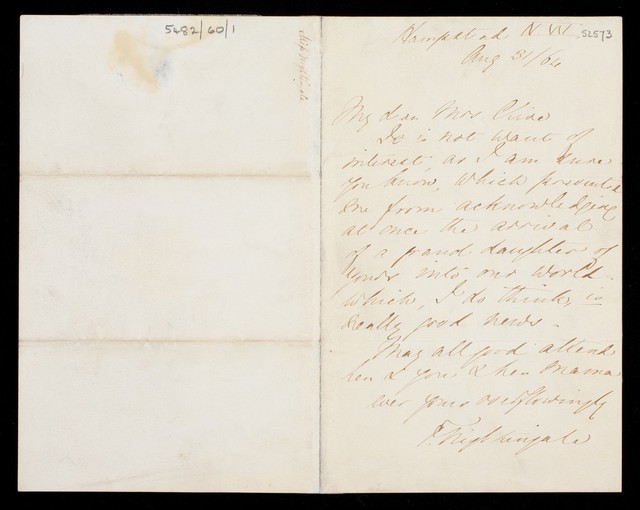 5482/60/1
Miss Nightingale
52573
Hampstead N.W.
Aug 31/64
My dear Mrs. Clive
It is not want of
interest, as I am sure
you know, which prevented
me from acknowledging
at once the arrival
of a grand daughter of
yours into our world -
which, I do think, is
really good news.
May all good attend
her & you & her Mama
ever yours overflowingly
F. Nightingale